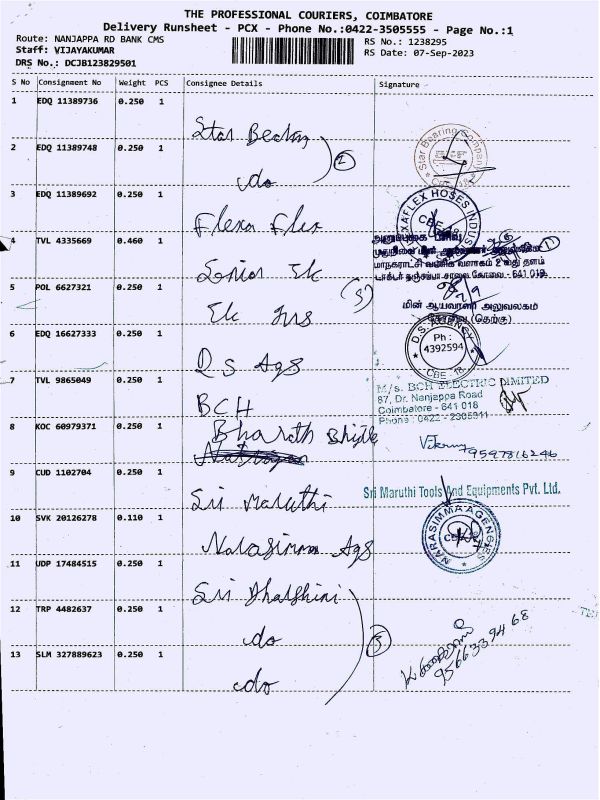 THE PROFESSIONAL COURIERS, COIMBATORE
Delivery Runsheet - PCX - Phone No.:0422-3505555 - Page No.:1
Route: NANJAPPA RD BANK CMS
RS No.: 1238295
Staff: VIJAYAKUMAR
RS Date: 07-Sep-2023
DRS No.: DCJB123829501
S No Consignment No Weight PCS Consignee Details Signature
1 EDQ 11389736 0.250 1
Star Bearing
Star Bearing Company
CBE-18
2 EDQ 11389748 0.250 1
do
2
3 EDQ 11389692 0.250 1
Flexa Flex
CBE-18
4 TVL 4335669 0.460 1
Senior Ek
மாநகராட்சி வணிக வளாகம் 2 வது தளம்
டாக்டர் நஞ்சப்பா சாலை, கோவை - 641 018
5 POL 6627321 0.250 1
Ek Ins
மின் ஆய்வாளர் அலுவலகம்
(தெற்கு)
6 EDQ 16627333 0.250 1
D S Ags
D.S. AGENCY
Ph :
4392594
CBE - 18
7 TVL 9865049 0.250 1
BCH
M/s. BCH ELECTRIC LIMITED
87, Dr. Nanjappa Road
Coimbatore - 641 018
Phone : 0422 - 2305911
8 KOC 60979371 0.250 1
Bharath
9597816246
9 CUD 1102704 0.250 1
Sri Maruthi
Sri Maruthi Tools And Equipments Pvt. Ltd.
10 SVK 20126278 0.110 1
Narasimma Ags
NARASIMMA AGENCIES
11 UDP 17484515 0.250 1
Sri Dharshini
12 TRP 4482637 0.250 1
do
13 SLM 327889623 0.250 1
do
9566339468